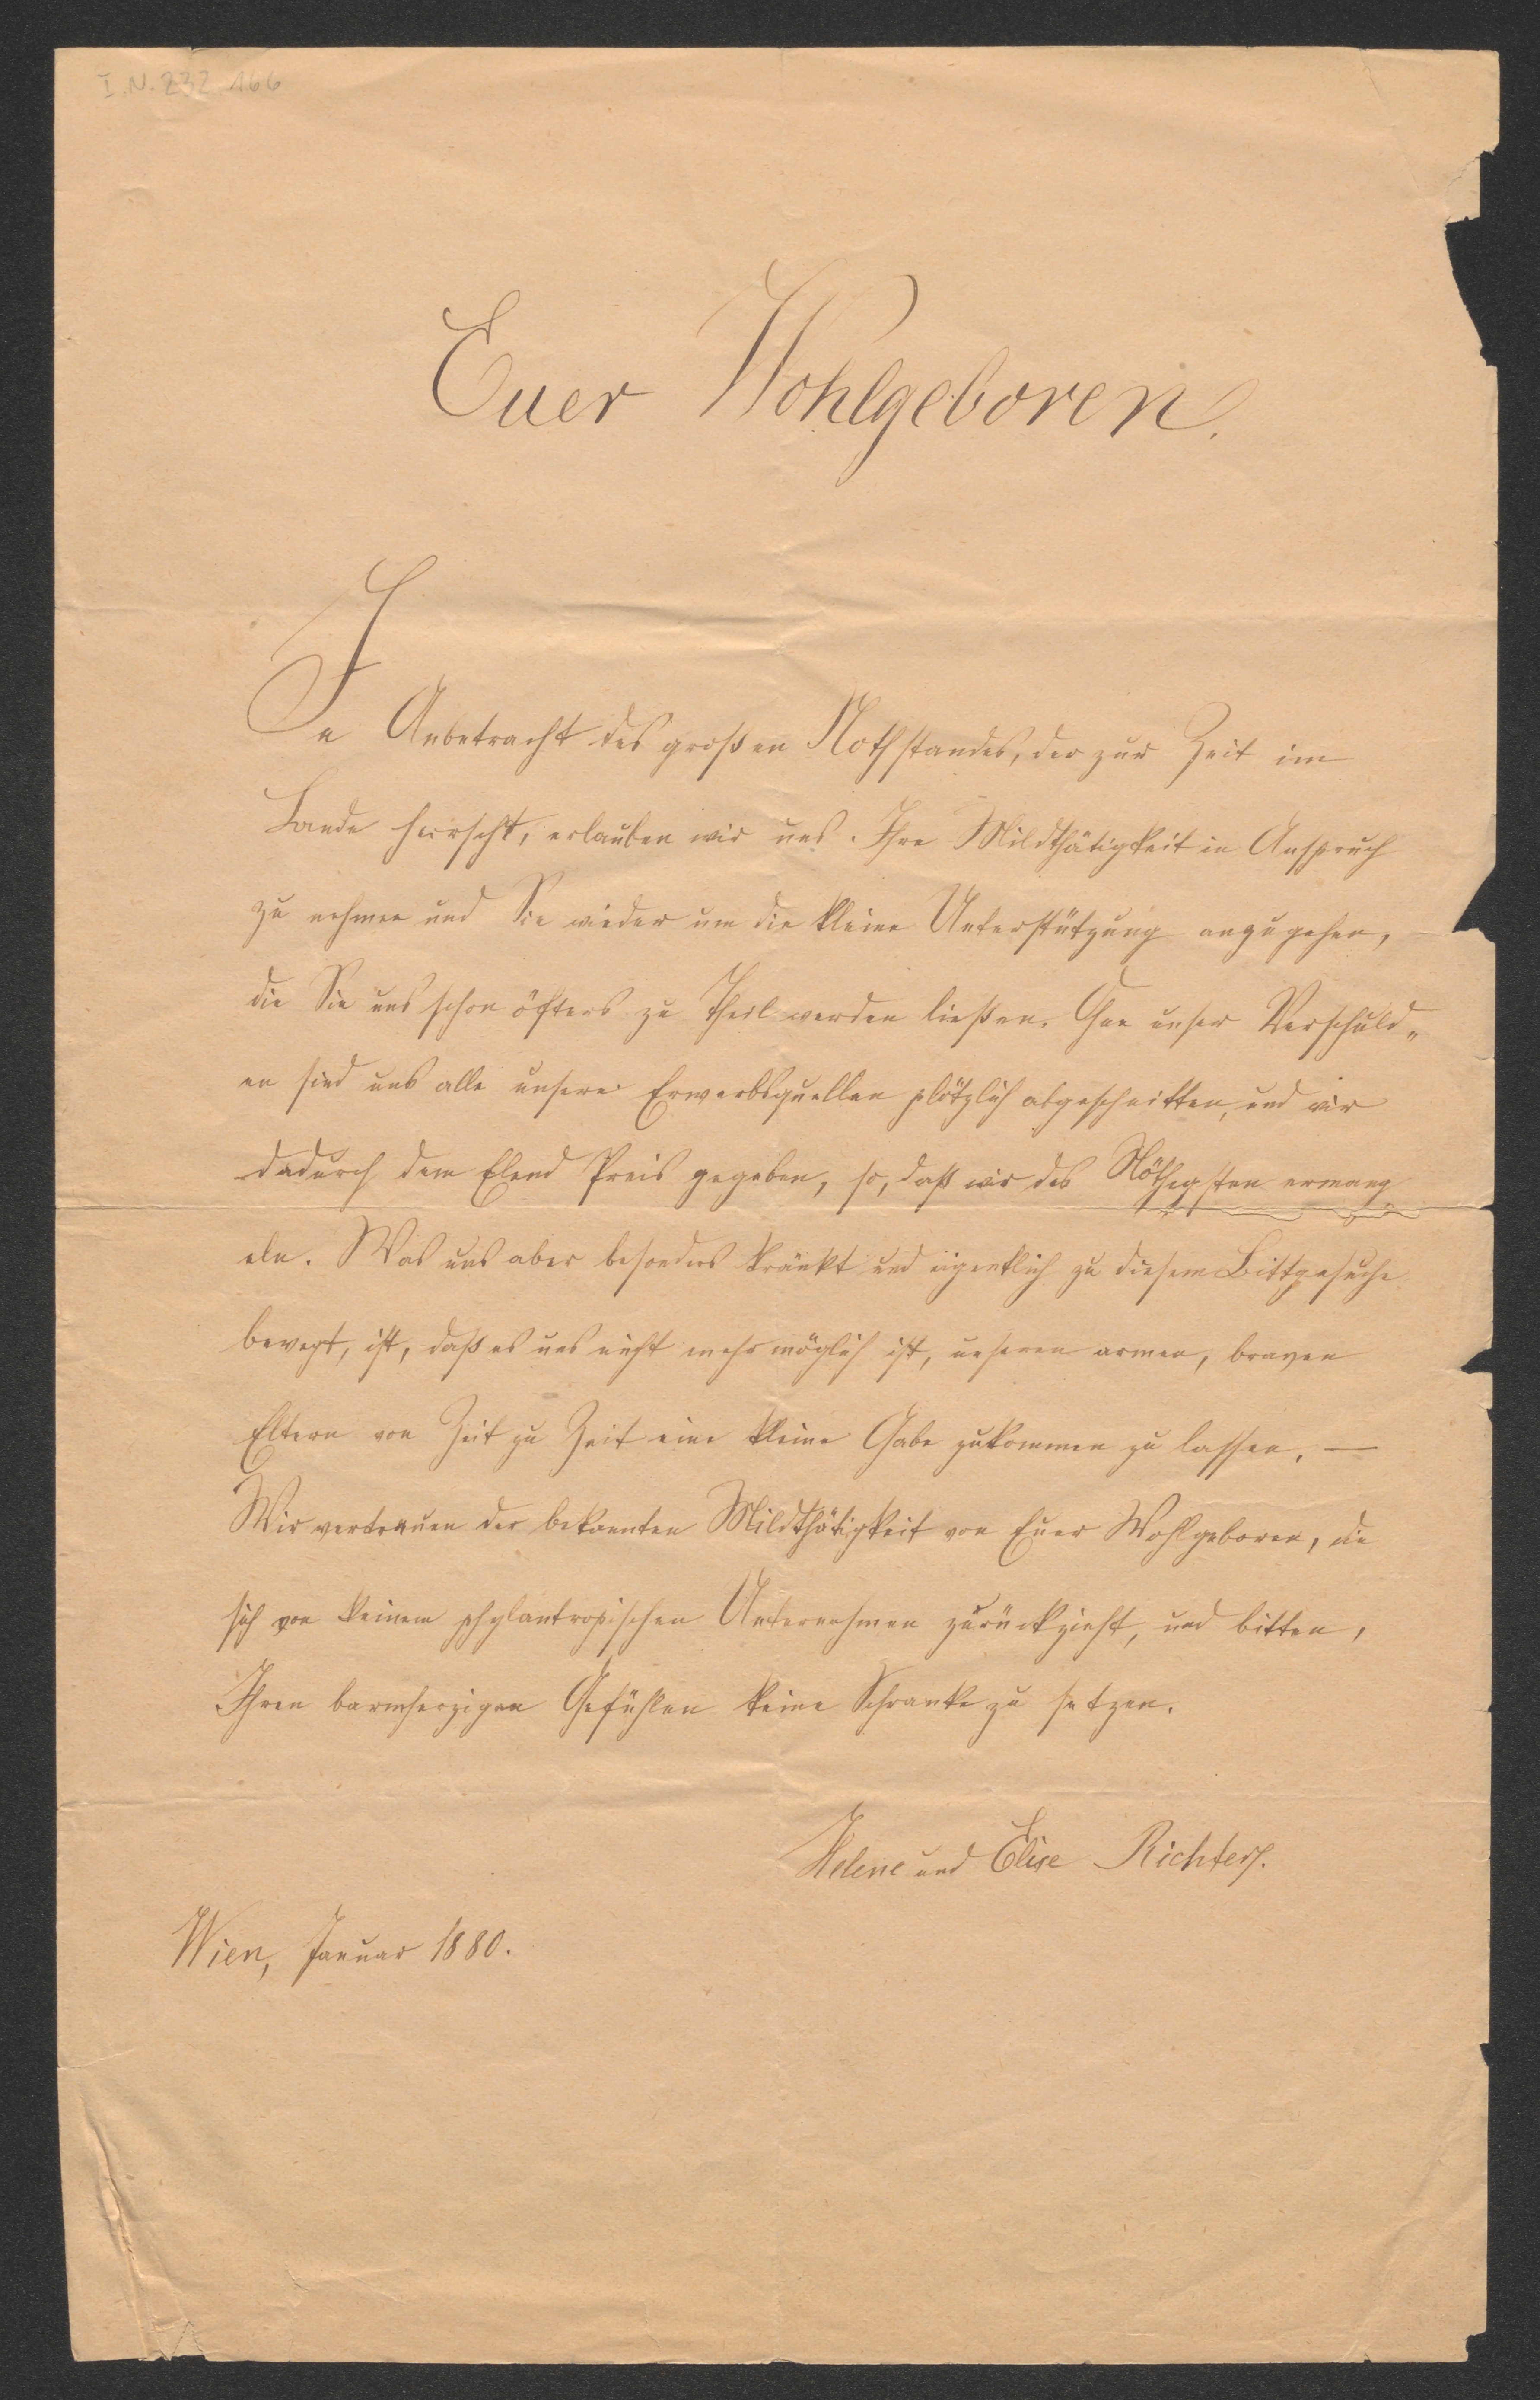 I.N. 232.166
Euer Wohlgeboren.
In Anbetracht des großen Nothstandes, der zur Zeit im
Lande herrscht, erlauben wir uns Ihre Mildthätigkeit in Anspruch
zu nehmen und Sie wieder um die kleine Unterstützung anzugehen,
die Sie uns schon öfters zu Theil werden ließen. Ohne unser Verschuld„
en sind uns alle unsere Erwerbsquellen plötzlich abgeschnitten, und wir
dadurch dem Elend Preis gegeben, so, daß wir des Nöthigsten ermang
eln. Was uns aber besonders kränkt und eigentlich zu diesem Bittgesuche
bewegt, ist, daß es uns nicht mehr möglich ist, unseren armen, braven
Eltern von Zeit zu Zeit eine kleine Gabe zukommen zu lassen. —
Wir vertrauen der bekannten Mildthätigkeit von Euer Wohlgeboren, die
sich von keinem phylantropischen Unternehmen zurückzieht, und bitten,
Ihren barmherzigen Gefühlen keine Schranke zu setzen.
Helene und Elise Richter.
Wien, Januar 1880.